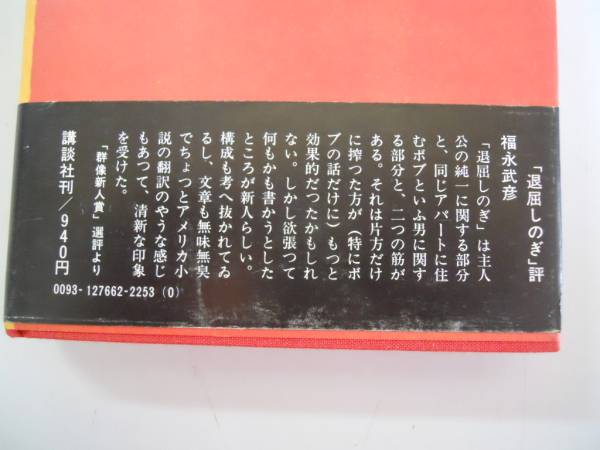 「退屈しのぎ」評
福永武彦
「退屈しのぎ」は主人
公の純一に関する部分
と、同じアパートに住
むボブといふ男に関す
る部分と、二つの筋が
ある。それは片方だけ
に搾つた方が（特にボ
ブの話だけに）もつと
効果的だつたかもしれ
ない。しかし欲張つて
何もかも書かうとした
ところが新人らしい。
構成も考へ抜かれてゐ
るし、文章も無味無臭
でちょつとアメリカ小
説の翻訳のやうな感じ
もあつて、清新な印象
を受けた。
「群像新人賞」選評より
講談社刊／940円
0093-127662-2253 (0)